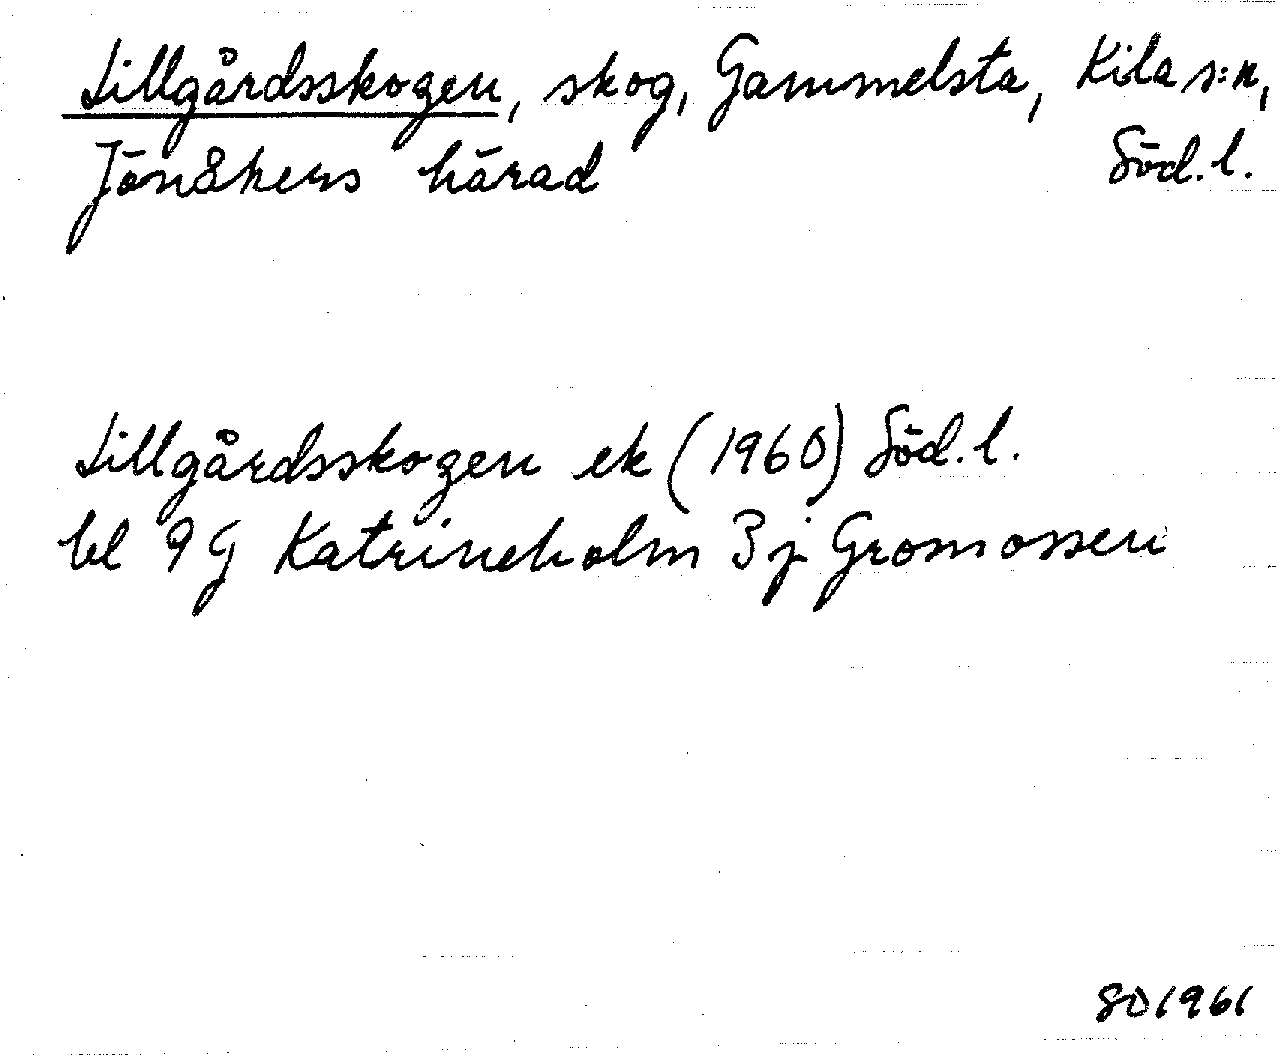 Lillgårdsskogen, skog, Gammelsta, Kila s:n,
Jönåkers härad Söd.l.
Lillgårdsskogen ek (1960) Söd.l.
bl 9G Katrineholm 3j Gromossen
SO 1961